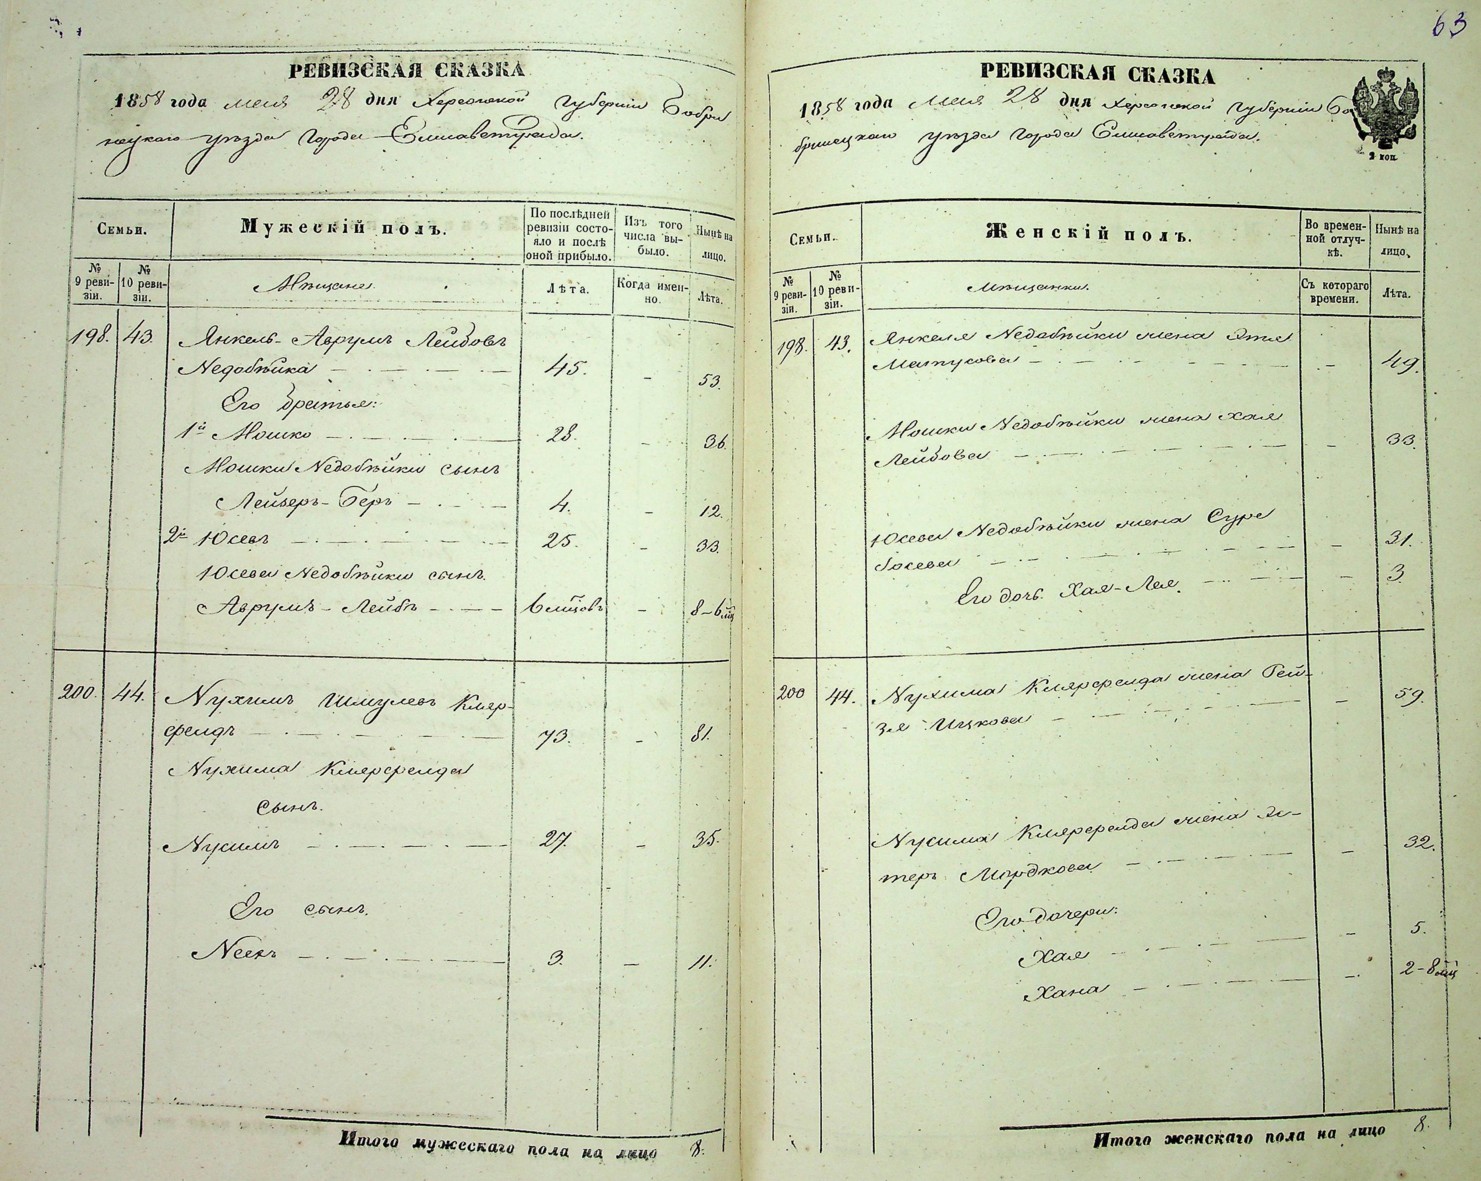 63
РЕВИЗСКАЯ СКАЗКА
1858 года Мая 28 дня Херсонской Губерніи Бобри
нецкаго уѣзда города Елисаветграда.
Семьи.
Мужескій полъ.
По послѣдней ревизіи состояло и послѣ оной прибыло.
Изъ того числа выбыло.
Нынѣ на лицо.
№ 9 ревизіи.
№ 10 ревизіи.
Мѣщане.
Лѣта.
Когда именно.
Лѣта.
198. 43. Янкель-Аврумъ Лейбовъ
Недобѣйка 45. - 53.
Его братья:
1й Мошко 28. - 36.
Мошки Недобѣйки сынъ
Лейзеръ-Беръ 4. - 12.
2й Юсевъ 25. - 33.
Юсева Недобѣйки сынъ.
Аврумъ-Лейбъ 6 мѣцовъ - 8-6 мц
200. 44. Нухимъ Шмулевъ Кляр-
фелдъ 73. - 81.
Нухима Клярфелда
сынъ.
Нусимъ 27. - 35.
Его сынъ.
3. - 11.
Итого мужескаго пола на лицо 8.
РЕВИЗСКАЯ СКАЗКА
1858 года Мая 28 дня Херсонской Губерніи Бо-
бринецкаго уѣзда города Елисаветграда.
2 коп.
Семьи.
Женскій полъ.
Во временной отлучкѣ.
Нынѣ на лицо.
№ 9 ревизіи.
№ 10 ревизіи.
Мѣщанки.
Съ котораго времени.
Лѣта.
198. 43. Янкеля Недобѣйки жена
- 49.
Мошки Недобѣйки жена Хая
Лейбова - 33.
Юсева Недобѣйки жена Сура
- 31.
Его дочь Хая-Лея. - 3.
200 44. Нухима Клярфелда жена Рей-
зя Ицкова - 59.
Нусима Клярфелда жена Эс-
теръ Мордкова - 32.
Его дочери:
Хая - 5.
Хана - 2-8 мц
Итого женскаго пола на лицо 8.